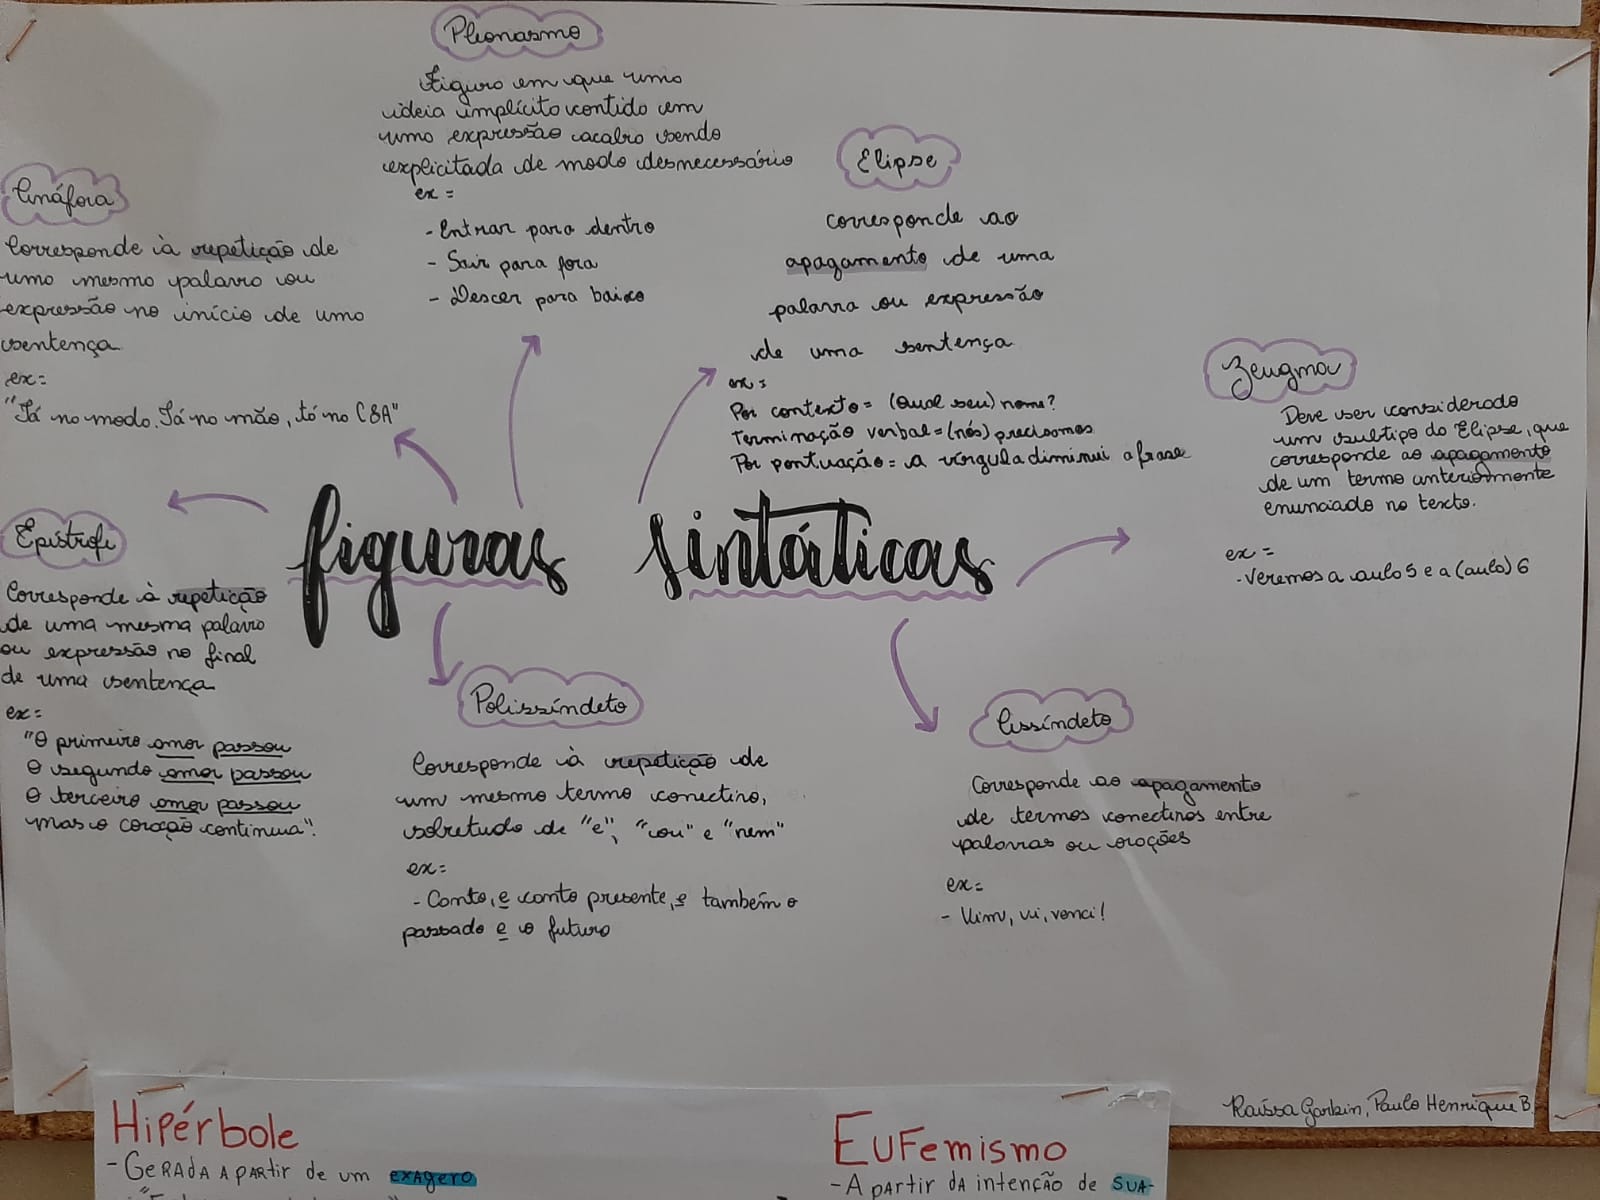 Pleonasmo
Figura em que uma
ideia implícita contida em
uma expressão acabra sendo
explicitada de modo desnecessário
ex =
- Entrar para dentro
- Sair para fora
- Descer para baixo
Elipse
corresponde ao
apagamento de uma
palavra ou expressão
de uma sentença
ex =
Por contexto = (Qual seu) nome?
Terminação verbal = (nós) precisamos
Por pontuação = a vírgula diminui a frase
Anáfora
Corresponde à repetição de
uma mesma palavra ou
expressão no início de uma
sentença
ex =
"Tá na moda. Tá na mão, tá na C&A"
Zeugma
Deve ser considerado
um subtipo da Elipse, que
corresponde ao apagamento
de um termo anteriormente
enunciado no texto.
ex =
- Veremos a aula 5 e a (aula) 6
figuras sintáticas
Epístrofe
Corresponde à repetição
de uma mesma palavra
ou expressão no final
de uma sentença
ex =
"O primeiro amor passou
O segundo amor passou
O terceiro amor passou
mas o coração continua".
Polissíndeto
Corresponde à repetição de
um mesmo termo conectivo,
sobretudo de "e", "ou" e "nem"
ex =
- Canto, e canto presente, e também o
passado e o futuro
Assíndeto
Corresponde ao apagamento
de termos conectivos entre
palavras ou orações
ex =
- Vim, vi, venci!
Raíssa Garbin, Paulo Henrique B.
HiPérbole
- GERADA A PARTIR DE UM EXAGERO
EuFemismo
- A PARTIR DA INTENÇÃO DE SUA-